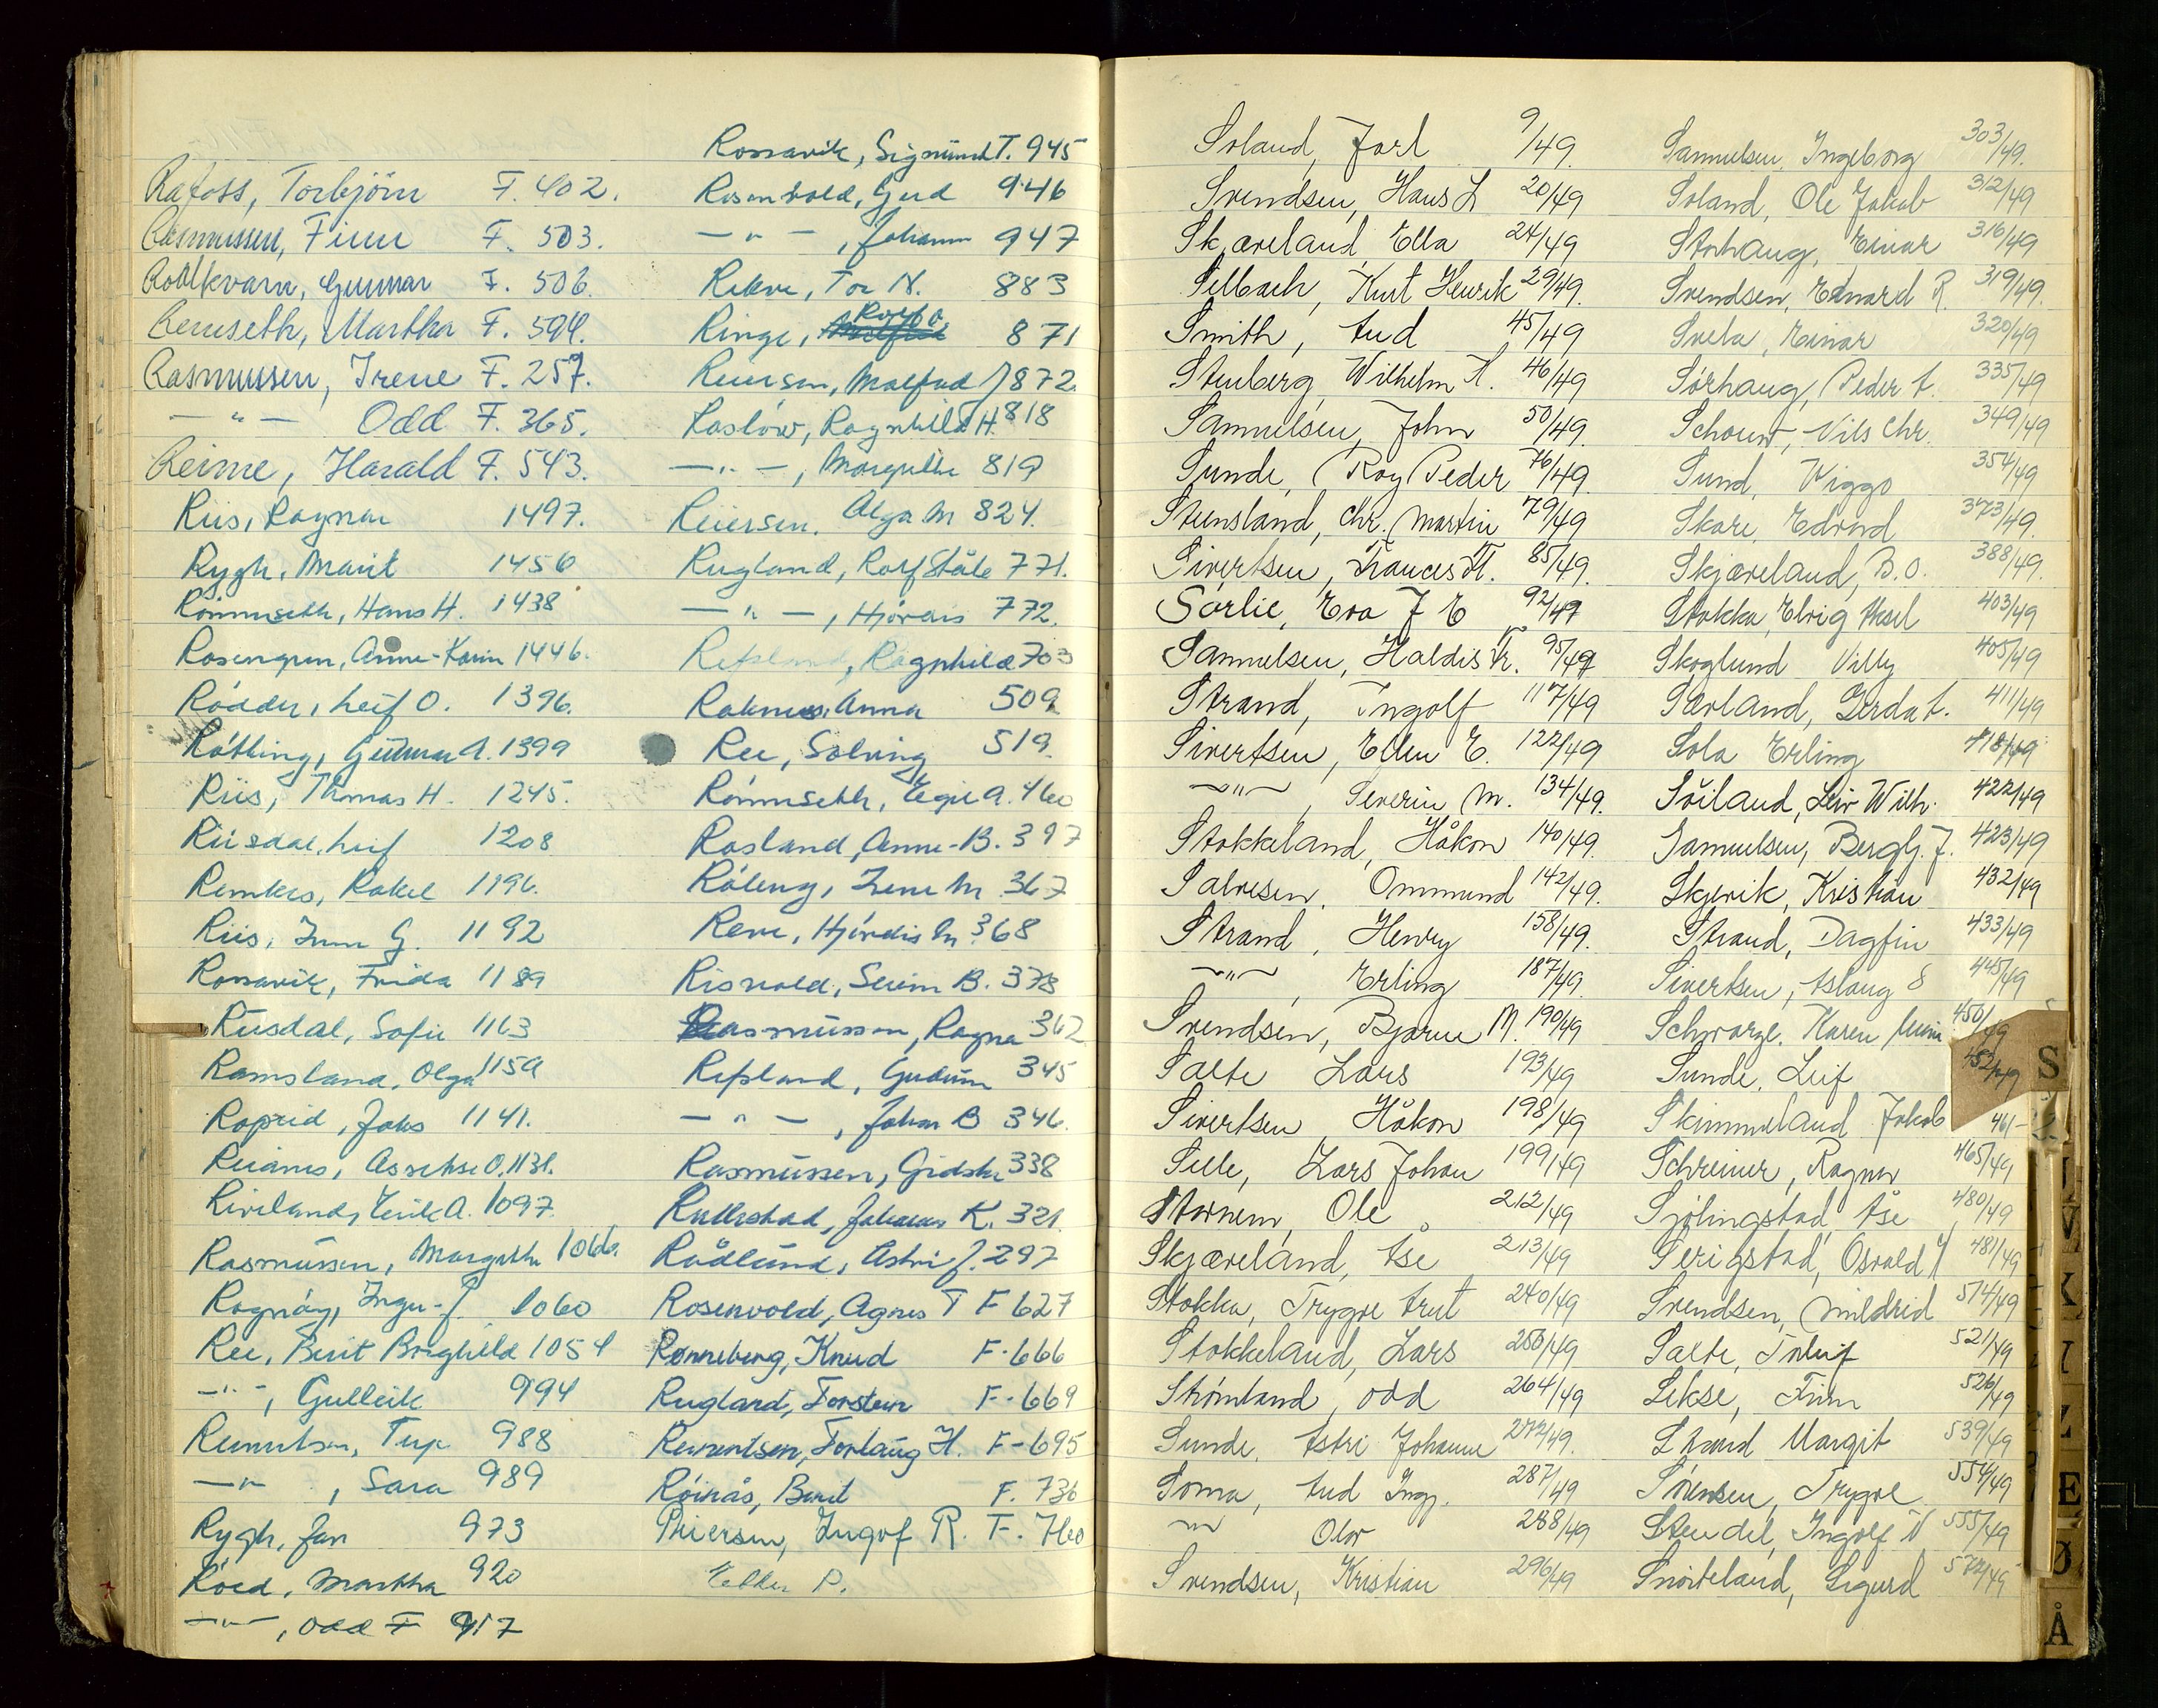 Rafoss, Torbjörn F. 402.
Rasmussen, Finn F. 503.
Gunnar F. 506.
Remseth, Martha F. 594.
Rasmussen, Irene F. 257.
— " — Odd F. 365.
Reime, Harald F. 543.
Riis, Ragnar 1497.
Rygh, Marit 1456
Römmseth, Hans H. 1438
Rosengren, Anne-Karin 1446.
Rödder, Leif O. 1396.
Rötting, Gunnar A. 1399
Riis, Thomas H. 1245.
Riisdal, Leif 1208
Remkes, Rakel 1196.
Riis, G. 1192
Rossavik, Frida 1189
Riisdal, Sofie 1163
Ramsland, Olga 1159
Johs 1141.
1131.
Erik A. 1097
Rasmussen, Margrethe 1066.
1060
Ree, Berit Borghild 1054
— " —, Gulleik 994
988
— " —, Sara 989
Rygh, Jan 973
Röed, Martha 920
— " —, Odd F 917
Rossavik, Sigmund T. 945
Rosenvold, Gerd 946
— " —, Johann 947
Rekve, Tor N. 883
Ringe, 871
872.
Raslöw, Ragnhild H. 818
— " —, Margrethe 819
Reiersen. Alga M 824.
Rugland, Rolf Ståle 771.
— " —, Hjördis 772.
Refsland, Ragnhild 703
Anna 509
Ree, Solveig 519.
Römmseth, A. 460
Rosland, Anne-B. 397
M. 367
Reve, Hjördis M. 368
Risvold, B. 378
Rasmussen, Ragna 362
Refsland, Gudrun 345
— " —, Johan B 346.
Rasmussen, Gidske 338
Rullestad, Johannes K. 321.
Rådlund, Astri J. 297
Rosenvold, Agnes T F 627
Rønneberg, Knud F. 666
Rugland, Torstein F. 669
Torlaug H. F-695
Röinås, Berit F. 736
Reiersen, Ingolf R. F. 760
Soland, Jarl 9/49.
Svendsen, Hans L 20/49
Skjæveland, Ella 24/49
Selbach, Kurt Henrik 29/49.
Smith, Aud 45/49
Stenberg, Wilhelm H. 46/49
Samuelsen, John 50/49.
Sunde, Roy Peder 76/49
Steensland, Chr. Martin 79/49
Sivertsen, Frances H. 85/49.
Sørlie, Eva J E 92/49
Samuelsen, Haldis Kr. 95/49
Strand, Ingolf 117/49
Sivertsen, Ellen E. 122/49
— " —, Severin M. 134/49.
Stokkeland, Håkon 140/49.
Salvesen, Ommund 142/49.
Strand, Henry 158/49.
— " —, Erling 187/49.
Svendsen, Bjarne M. 190/49
Salte Lars 193/49
Sivertsen Håkon 198/49
Sele, Lars Johan 199/49
Stornem, Ole 212/49
Skjæveland, Åse 213/49
Stokka, Trygve Arnt 240/49
Stokkeland, Lars 250/49
Strømland, Odd 264/49
Sunde, Astri Johanne 272/49.
Soma, Aud Ing. 287/49
— " — Olav 288/49
Svendsen, Kristian 296/49
Samuelsen, Ingeborg 303/49.
Soland, Ole Jakob 312/49
Storhaug, Einar 316/49
Svendsen, Edvard R. 319/49.
Svela, Einar 320/49
Sörhaug, Peder A. 335/49
Nils Chr. 349/49
Sund, Viggo 354/49
Skare, Edvard 373/49.
Skjæveland, B.O. 388/49.
Stokka, Elvig Aksel 403/49
Skoglund Villy 405/49
Særland, Gerda A. 411/49
Sola Erling 418/49
Söiland, Leiv Wilh. 422/49
Samuelsen, Bergl. J. 423/49
Skjevik, Kristian 432/49
Strand, Dagfin 433/49
Sivertsen, Aslaug S 445/49
Karen 450/49
Sunde, Leif 452/49
Skimmeland Jakob 461 —
Schreiner, Ragnv 465/49
Sjölingstad, Åse 480/49
Serigstad, Osvald 481/49
Svendsen, Mildrid 514/49
Salte, Tolleif 521/49
Sekse, Finn 526/49
Margit 539/49
Sörensen, Trygve 554/49
Stendel, Ingolf N 555/49
Snörteland, Sigurd 572/49
S
V
E
Ø
Å